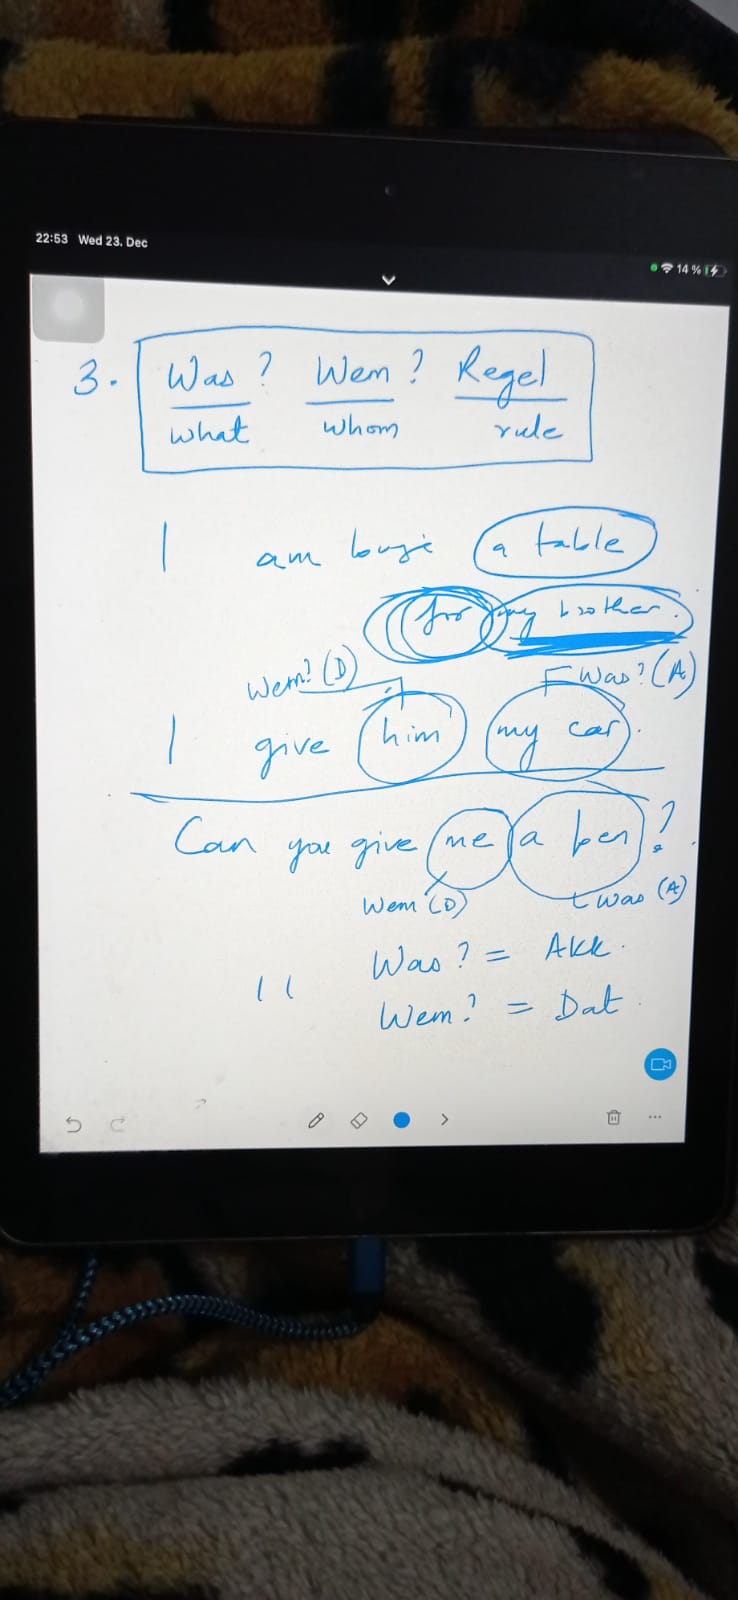 22:53 Wed 23. Dec
14 %
3. Was? Wem? Regel
what whom rule
I am buyi a table
for my brother.
Wem? (D) Was? (A)
I give him my car.
Can you give me a pen?
Wem (D) Was (A)
Was? = Akk.
Wem? = Dat.